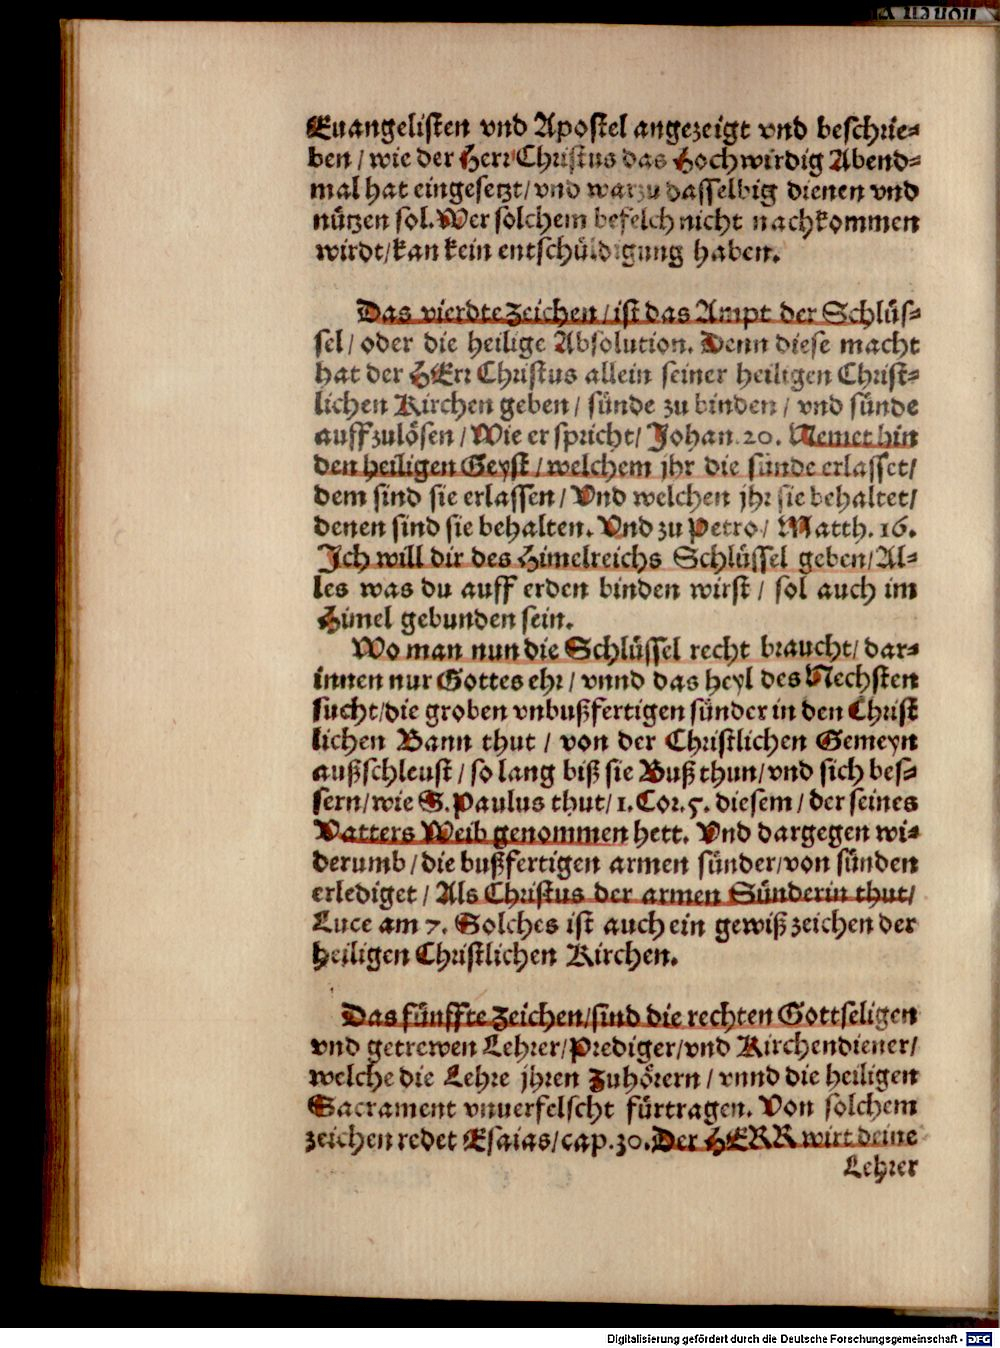 Euangelisten vnd Apostel angezeigt vnd beschrie-
ben / wie der Herr Christus das Hochwirdig Abend-
mal hat eingesetzt / vnd warzu dasselbig dienen vnd
nützen sol. Wer solchem befelch nicht nachkommen
wirdt / kan kein entschüldigung haben.
Das vierdte Zeichen / ist das Ampt der Schlüs-
sel / oder die heilige Absolution. Denn diese macht
hat der HErr Christus allein seiner heiligen Christ-
lichen Kirchen geben / sünde zu binden / vnd sünde
auffzulösen / Wie er spricht / Johan. 20. Nemet hin
den heiligen Geyst / welchem jhr die sünde erlasset /
dem sind sie erlassen / Vnd welchen jhr sie behaltet /
denen sind sie behalten. Vnd zu Petro / Matth. 16.
Ich will dir des Himelreichs Schlüssel geben / Al-
les was du auff erden binden wirst / sol auch im
Himel gebunden sein.
Wo man nun die Schlüssel recht braucht / dar-
innen nur Gottes ehr / vnnd das heyl des Nechsten
sucht / die groben vnbußfertigen sünder in den Christ
lichen Bann thut / von der Christlichen Gemeyn
außschleust / so lang biß sie Buß thun / vnd sich bes-
sern / wie S. Paulus thut / 1. Cor. 5. diesem / der seines
Vatters Weib genommen hett. Vnd dargegen wi-
derumb / die bußfertigen armen sünder / von sünden
erlediget / Als Christus der armen Sünderin thut /
Luce am 7. Solches ist auch ein gewiß zeichen der
heiligen Christlichen Kirchen.
Das fünffte Zeichen / sind die rechten Gottseligen
vnd getrewen Lehrer / Prediger / vnd Kirchendiener /
welche die Lehre jhren Zuhörern / vnnd die heiligen
Sacrament vnuerfelscht fürtragen. Von solchem
zeichen redet Esaias / cap. 30. Der HERR wirt deine
Lehrer
Digitalisierung gefördert durch die Deutsche Forschungsgemeinschaft - DFG